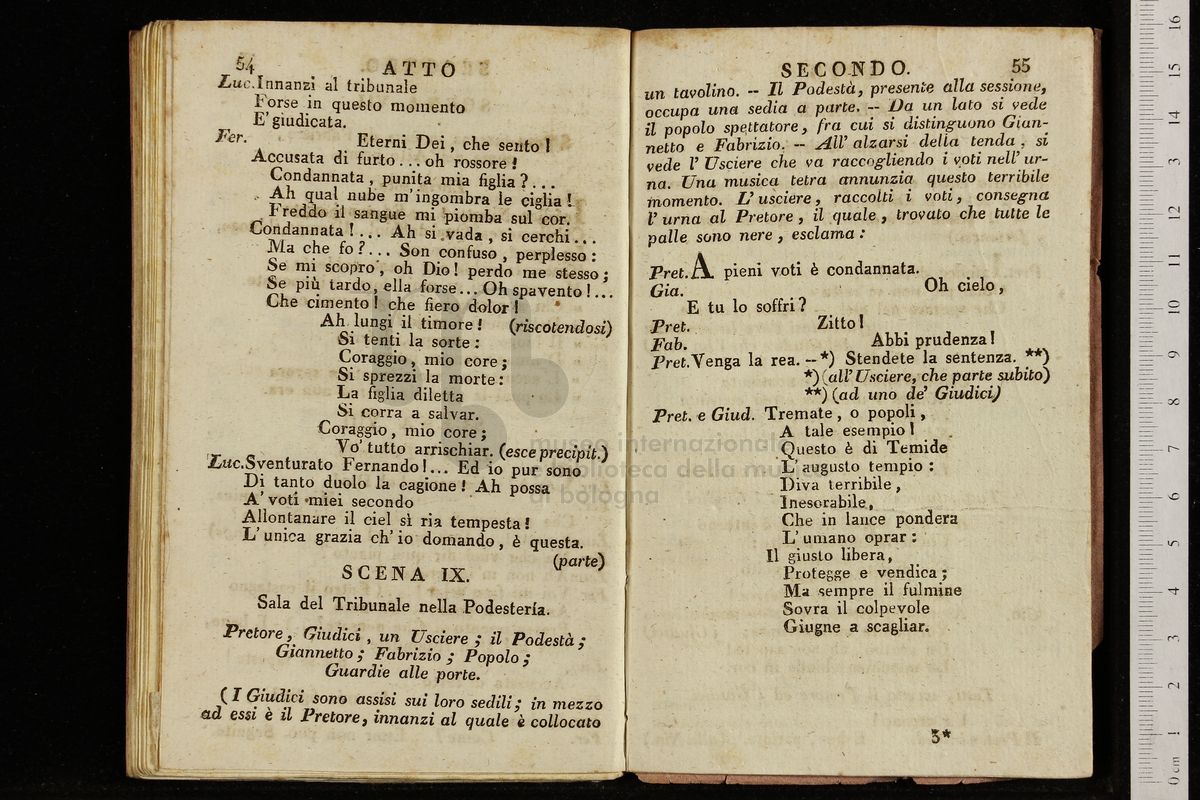 54
ATTO
Luc. Innanzi al tribunale
Forse in questo momento
E' giudicata.
Fer. Eterni Dei, che sento!
Accusata di furto... oh rossore!
Condannata, punita mia figlia?...
Ah qual nube m'ingombra le ciglia!
Freddo il sangue mi piomba sul cor.
Condannata!... Ah si vada, si cerchi...
Ma che fo?... Son confuso, perplesso:
Se mi scopro, oh Dio! perdo me stesso;
Se più tardo, ella forse... Oh spavento!...
Che cimento! che fiero dolor!
Ah lungi il timore! (riscotendosi)
Si tenti la sorte:
Coraggio, mio core;
Si sprezzi la morte:
La figlia diletta
Si corra a salvar.
Coraggio, mio core;
Vo' tutto arrischiar. (esce precipit.)
Luc. Sventurato Fernando!... Ed io pur sono
Di tanto duolo la cagione! Ah possa
A' voti miei secondo
Allontanare il ciel sì ria tempesta!
L'unica grazia ch'io domando, è questa.
(parte)
SCENA IX.
Sala del Tribunale nella Podestería.
Pretore, Giudici, un Usciere; il Podestà;
Giannetto; Fabrizio; Popolo;
Guardie alle porte.
(I Giudici sono assisi sui loro sedili; in mezzo
ad essi è il Pretore, innanzi al quale è collocato
SECONDO.
55
un tavolino. -- Il Podestà, presente alla sessione,
occupa una sedia a parte. -- Da un lato si vede
il popolo spettatore, fra cui si distinguono Gian-
netto e Fabrizio. -- All' alzarsi della tenda, si
vede l' Usciere che va raccogliendo i voti nell' ur-
na. Una musica tetra annunzia questo terribile
momento. L' usciere, raccolti i voti, consegna
l' urna al Pretore, il quale, trovato che tutte le
palle sono nere, esclama:
Pret. A pieni voti è condannata.
Gia. Oh cielo,
E tu lo soffri?
Pret. Zitto!
Fab. Abbi prudenza!
Pret. Venga la rea. -- *) Stendete la sentenza. **)
*) (all' Usciere, che parte subito)
**) (ad uno de' Giudici)
Pret. e Giud. Tremate, o popoli,
A tale esempio!
Questo è di Temide
L' augusto tempio:
Diva terribile,
Inesorabile,
Che in lance pondera
L' umano oprar:
Il giusto libera,
Protegge e vendica;
Ma sempre il fulmine
Sovra il colpevole
Giugne a scagliar.
3*
museo internazionale
e biblioteca della musica
di bologna
0 cm 1 2 3 4 5 6 7 8 9 10 11 12 13 14 15 16